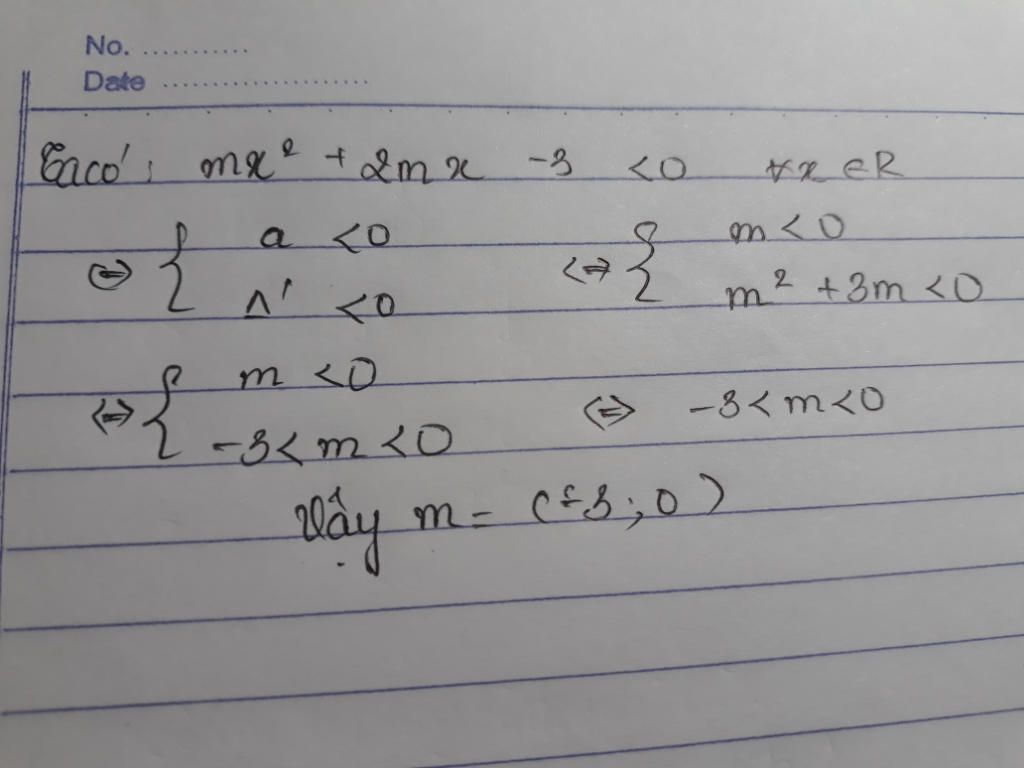 No. ...........
Date ......................
Ta có: mx² + 2mx -3 <0 ∀x ∈R
⇔ { a <0 ⇔ { m<0
Δ' <0 m² +3m <0
⇔ { m <0 ⇔ -3<m<0
-3< m <0
Vậy m = (-3;0)